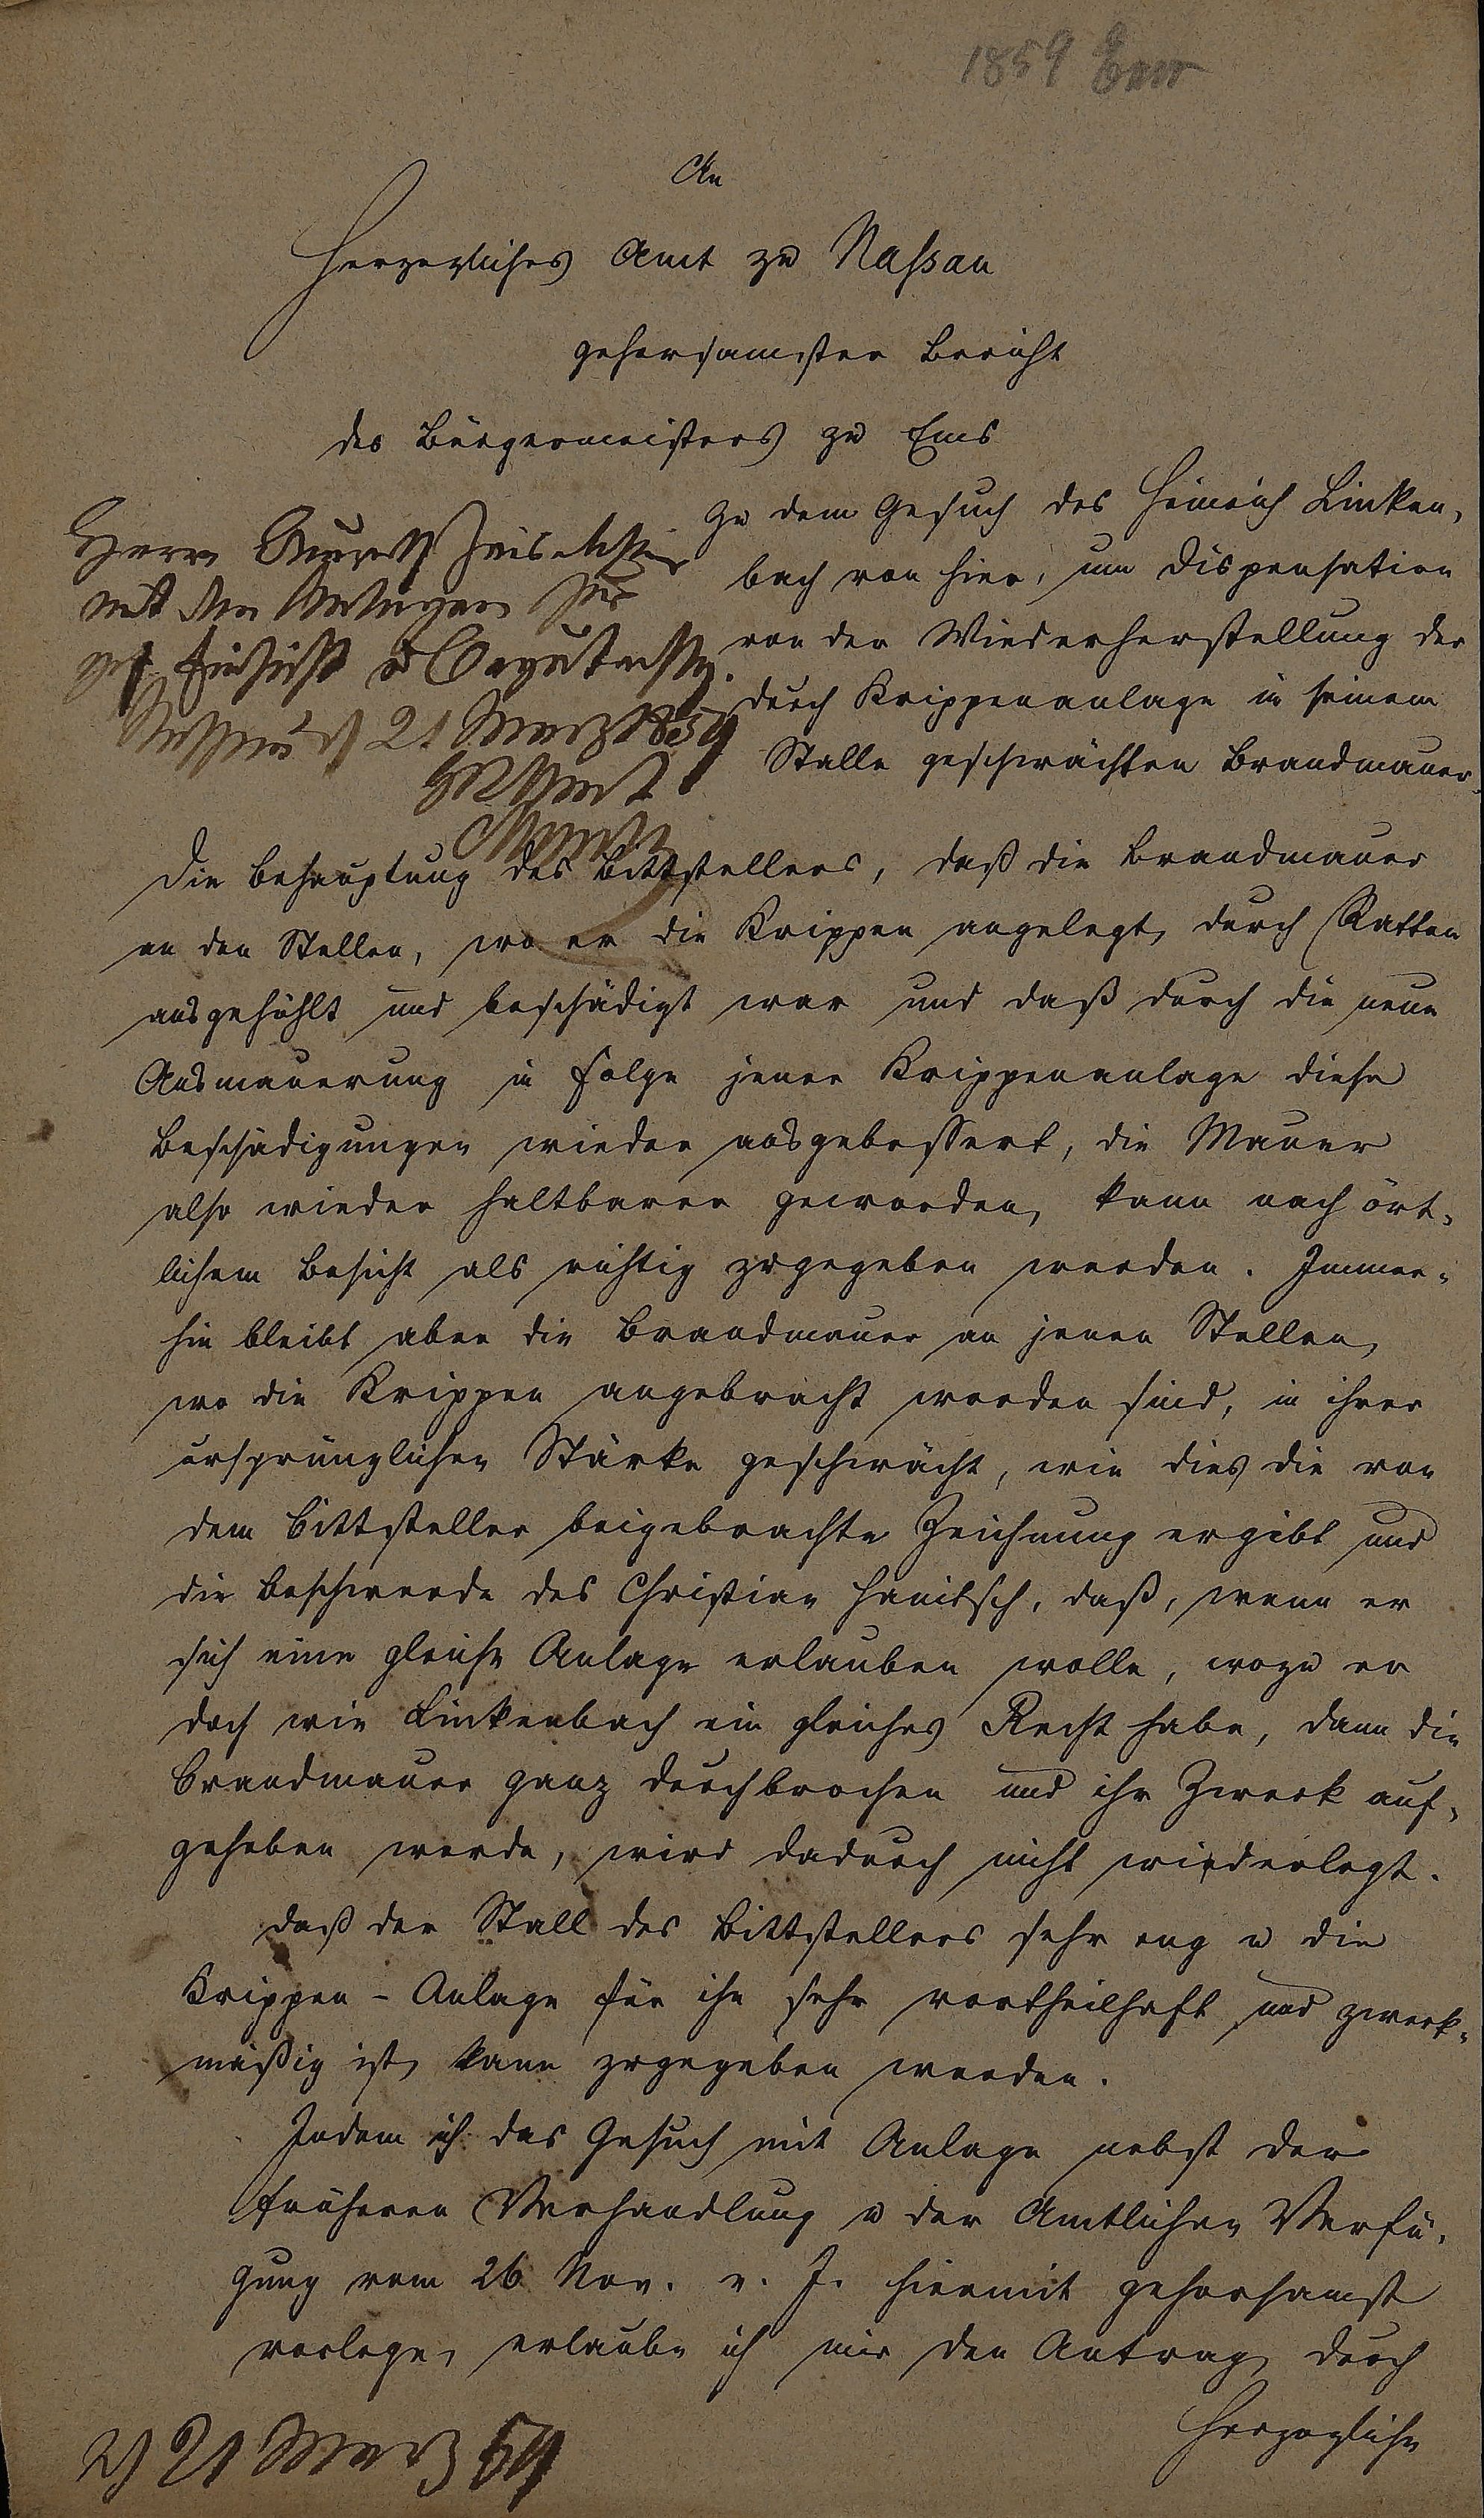 1859
An
Herzogliches Amt zu Naßau
gehorsamster Bericht
des Bürgermeisters zu Ems
zu dem Gesuch des Heinrich Linken-
bach von hier, um Dispensation
von der Wiederherstellung der
durch Krippenanlage in seinem
Stalle geschwächten Brandmauer.
Herrn
mit den Anlagen zur
gef Einsicht u Begutachtg.
Nassau d 21 März 1859
HN Amt
Die Behauptung des Bittstellers, daß die Brandmauer
an den Stellen, wo er die Krippen angelegt, durch Ratten
ausgehöhlt und beschädigt war und daß durch die neue
Ausmauerung in Folge jener Krippenanlage diese
Beschädigungen wieder ausgebessert, die Mauer
also wieder haltbarer geworden, kann nach ört-
lichem Besicht als richtig zugegeben werden. Immer-
hin bleibt aber die Brandmauer an jenen Stellen,
wo die Krippen angebracht worden sind, in ihrer
ursprünglichen Stärke geschwächt, wie dies die von
dem Bittsteller beigebrachte Zeichnung ergibt und
die Beschwerde des Christian Hanitsch, daß, wenn er
sich eine gleiche Anlage erlauben wolle, wozu er
doch wie Linkenbach ein gleiches Recht habe, dann die
Brandmauer ganz durchbrochen und ihr Zweck auf-
gehoben werde, wird dadurch nicht wiederlegt.
Daß der Stall des Bittstellers sehr eng u die
Krippen-Anlage für ihn sehr vortheilhaft und zweck-
mäßig ist, kann zugegeben werden.
Indem ich das Gesuch mit Anlage nebst der
früheren Verhandlung u der Amtlichen Verfü-
gung vom 26 Nov. v. J. hiermit gehorsamst
vorlege, erlaube ich mir den Antrag, durch
Herzogliche
21 März 59